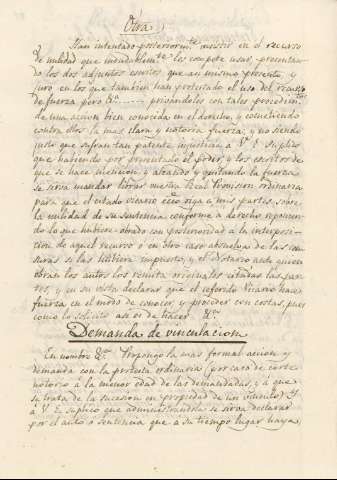 Otra
Han intentado posteriormte. insistir en el recurso
de nulidad que indudablemte. les compete usar, presentan-
do los dos adjuntos escritos, que asimismo presento, y
juro, en los que tambien han protextado el uso del recurso
de fuerza pero &c. ...... privandoles con tales procedim.
de una accion bien conocida en el derecho, y cometiendo
contra ellos la mas clara y notoria fuerza; y no siendo
justo que sufran tan patente injusticia = A V. E. suplico
que habiendo por presentado el poder, y los escritos de
que se hace mencion, y alzando y quitando la fuerza
se sirva mandar librar vuestra Real Provision ordinaria
para que el citado vicario ecco. oiga a mis partes, sobre
la nulidad de su sentencia conforme a derecho reponien-
do lo que hubiere obrado con posterioridad a la interposi-
cion de aquel recurso o en otro caso absuelva de las cen-
suras si las hubiera impuesto, y el Notario ante quien
obran los autos los remita originales citadas las par-
tes, y en su vista declarar que el referido Vicario hace
fuerza en el modo de conocer, y proceder con costas, pues
como lo solicito asi es de hacer &c.
Demanda de vinculacion
En nombre &c. Propongo la mas formal accion y
demanda con la protexta ordinaria (por caso de corte
notorio a la menor edad de las demandadas, y a que
se trata de la sucesion en propiedad de un vinculo) Y
A V. E. suplico que administrandola se sirva declarar
por el auto o sentencia que a su tiempo lugar haya,